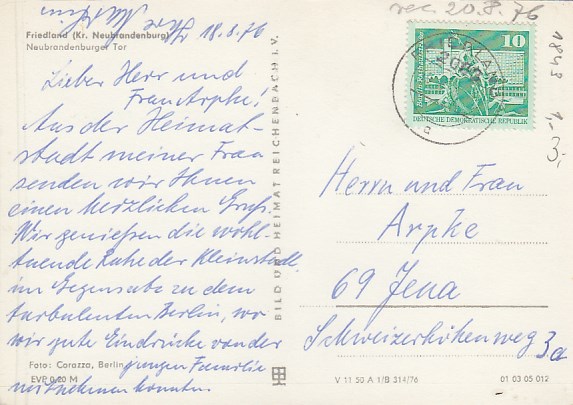 rec. 20.8.76
Friedland (Kr. Neubrandenburg)
Neubrandenburger Tor
18.8.76
Lieber Herr und
Frau Arpke!
Aus der Heimat-
stadt meiner Frau
senden wir Ihnen
einen herzlichen Gruß.
Wir genießen die wohl-
tuende Ruhe der Kleinstadt
im Gegensatz zu dem
turbulenten Berlin, wo
wir gute Eindrücke von der
jungen Familie
mitnehmen konnten.
Foto: Corazza, Berlin
EVP 0,20 M
BILD UND HEIMAT REICHENBACH I. V.
10
DEUTSCHE DEMOKRATISCHE REPUBLIK
1843
1,-
3,
Herrn und Frau
Arpke
69 Jena
Schweizerhöhenweg 3a
V 11 50 A 1/B 314/76
01 03 05 012